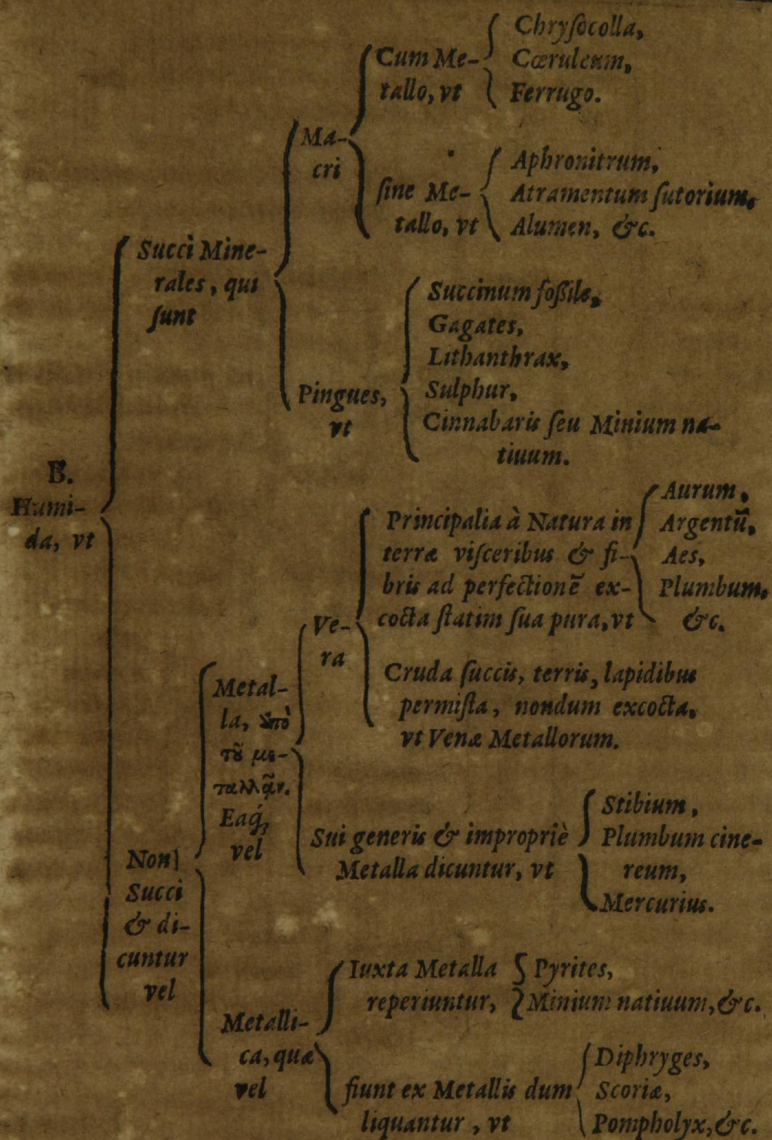 B.
Humi-
da, vt
Succi Mine-
rales, qui
ſunt
Ma-
cri
Cum Me-
tallo, vt
Chryſocolla,
Cœruleum,
Ferrugo.
ſine Me-
tallo, vt
Aphronitrum,
Atramentum ſutorium,
Alumen, &c.
Pingues,
vt
Succinum foßile,
Gagates,
Lithanthrax,
Sulphur,
Cinnabaris ſeu Minium na-
tiuum.
Non
Succi
& di-
cuntur
vel
Metal-
la, ἀπὸ
τοῦ με-
ταλλᾶν.
Eaq́;
vel
Ve-
ra
Principalia à Natura in
terræ viſceribus & fi-
bris ad perfectionē ex-
cocta ſtatim ſua pura, vt
Aurum,
Argentū,
Aes,
Plumbum,
&c.
Cruda ſuccis, terris, lapidibus
permiſta, nondum excocta,
vt Venæ Metallorum.
Sui generis & impropriè
Metalla dicuntur, vt
Stibium,
Plumbum cine-
reum,
Mercurius.
Metalli-
ca, quæ
vel
Iuxta Metalla
reperiuntur,
Pyrites,
Minium natiuum, &c.
fiunt ex Metallis dum
liquantur, vt
Diphryges,
Scoriæ,
Pompholyx, &c.